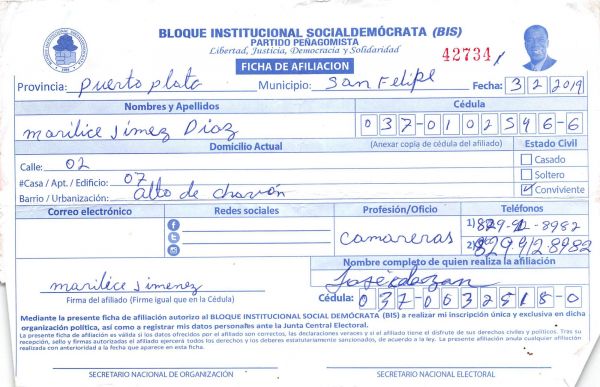 BLOQUE INSTITUCIONAL SOCIALDEMÓCRATA (BIS)
PARTIDO PEÑAGOMISTA
Libertad, Justicia, Democracia y Solidaridad
FICHA DE AFILIACION
42734
Provincia: Puerto plata Municipio: San Felipe Fecha: 3 2 2019
Nombres y Apellidos Cédula
marilice Jimez Diaz 037-0102546-6
Domicilio Actual (Anexar copia de cédula del afiliado) Estado Civil
Calle: 02 Casado
#Casa / Apt. / Edificio: 07 Soltero
Barrio / Urbanización: alto de chavón Conviviente
Correo electrónico Redes sociales Profesión/Oficio Teléfonos
camareras
1) 829-912-8982
2) 829-912-8982
Nombre completo de quien realiza la afiliación
marilice simenez
Firma del afiliado (Firme igual que en la Cédula) Cédula: 037-0632518-0
Mediante la presente ficha de afiliación autorizo al BLOQUE INSTITUCIONAL SOCIAL DEMÓCRATA (BIS) a realizar mi inscripción única y exclusiva en dicha
organización política, así como a registrar mis datos personales ante la Junta Central Electoral.
La presente ficha de afiliación es válida si los datos ofrecidos por el afiliado son correctos, las declaraciones veraces y si el afiliado tiene el disfrute de sus derechos civiles y políticos. Tras su
recepción, sello y firmas autorizadas el afiliado ejercerá todos los derechos y los deberes estatutariamente sancionados, de acuerdo a la ley. La presente afiliación anula cualquier afiliación
realizada con anterioridad a la fecha que aparece en esta ficha.
SECRETARIO NACIONAL DE ORGANIZACIÓN SECRETARIO NACIONAL ELECTORAL